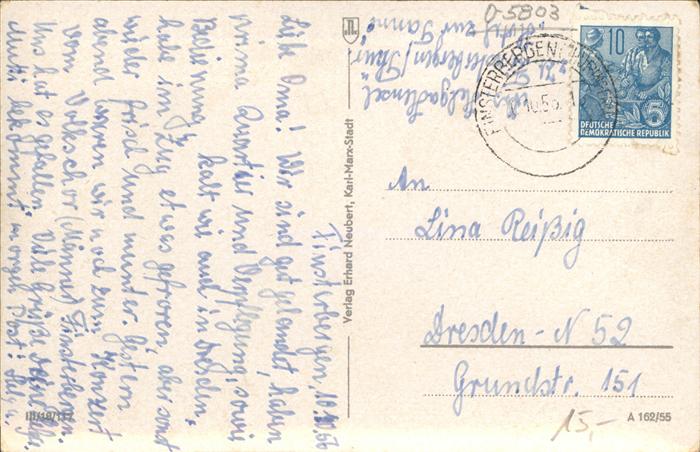 Finsterbergen, 10.10.56
Lieb Oma! Wir sind gut gelandet, haben
prima Quartier und Verpflegung, sowie
Bedienung. kalt wie auch in Dresden,
habe im Zug etwas gefroren, aber sonst
wieder frisch und munter. Gestern
abend waren wir noch zum Konzert
vom Volkschor (Männer) Finsterbergen.
Uns hat es gefallen. Viele Grüße
Mutti bekommt morgen Post:
Finsterbergen/Thür.
zur Tanne
0-5803
FINSTERBERGEN
10.56
10
5
DEUTSCHE
DEMOKRATISCHE REPUBLIK
Verlag Erhard Neubert, Karl-Marx-Stadt
An
Lina Reißig
Dresden-N 52
Grundstr. 151
15,-
III/18/117
A 162/55